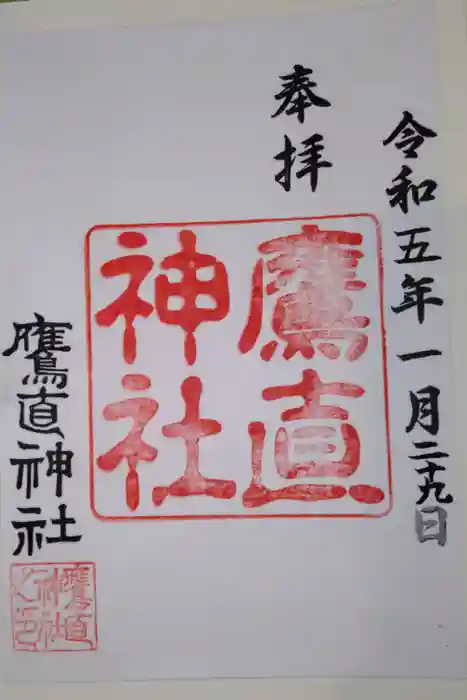 令和五年一月二十九日
奉拝
鷹直
神社
鷹直神社